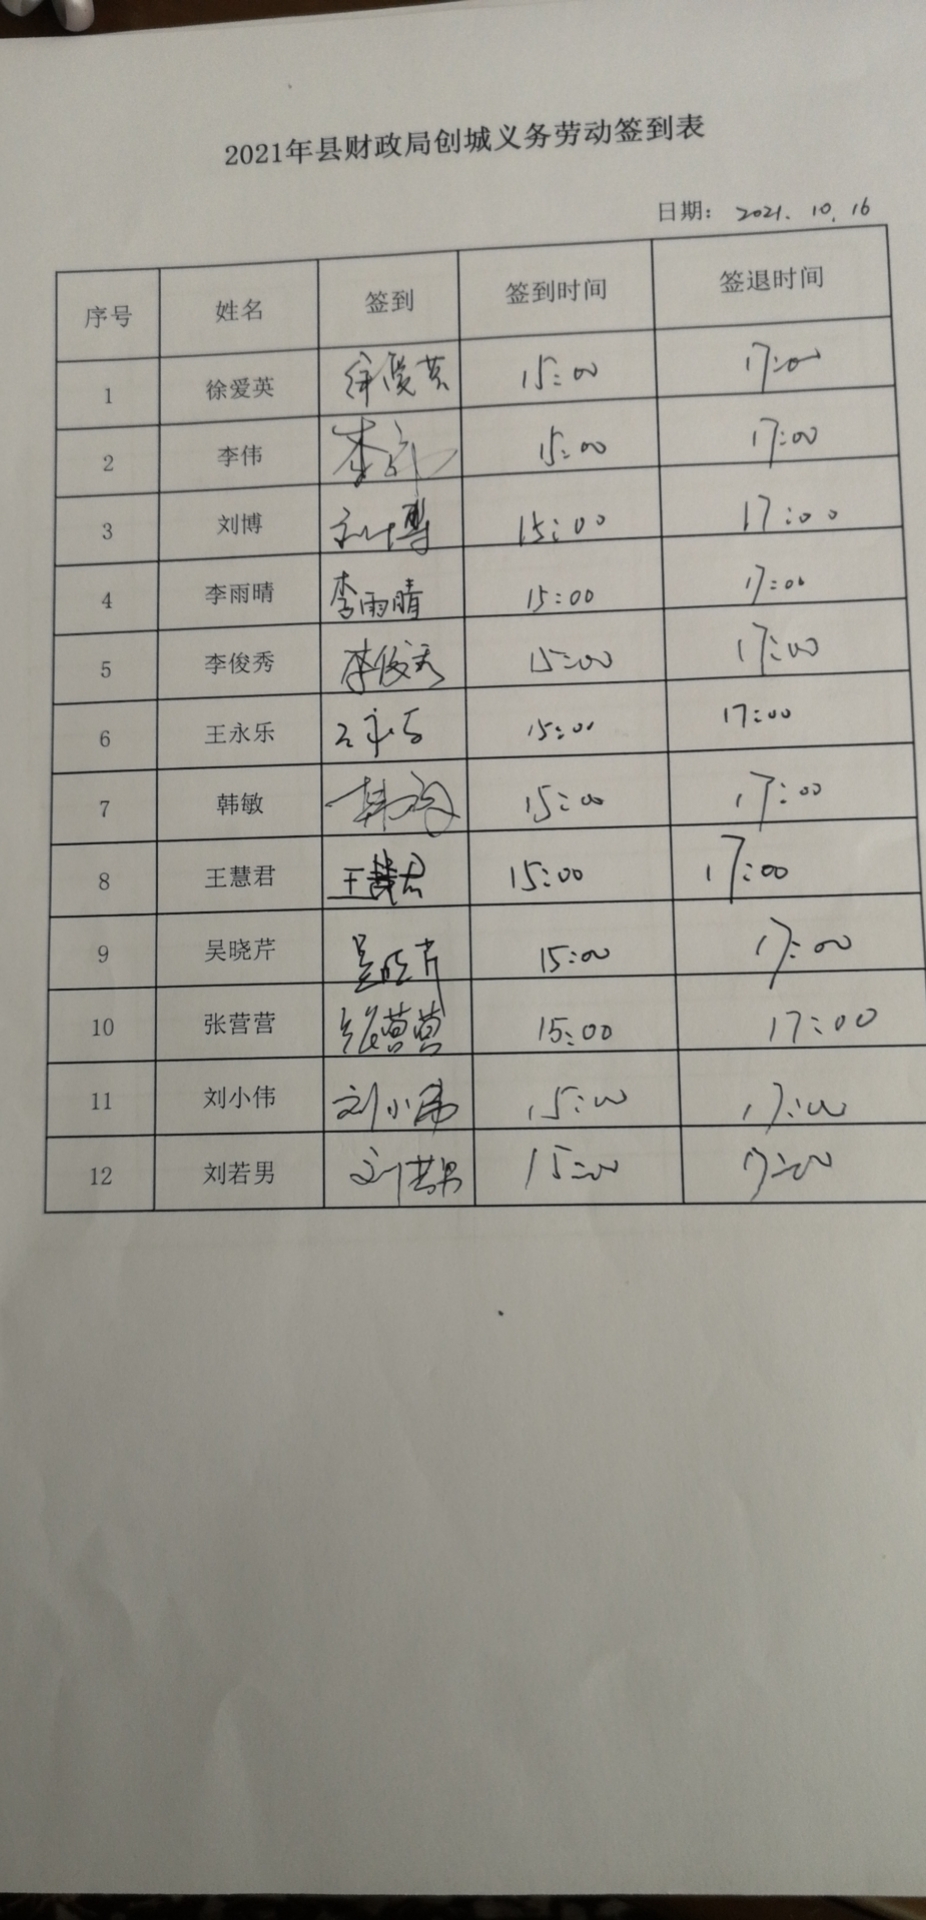 2021年县财政局创城义务劳动签到表
日期: 2021.10.16
序号 姓名 签到 签到时间 签退时间
1 徐爱英 徐爱英 15:00 17:00
2 李伟 李伟 15:00 17:00
3 刘博 刘博 15:00 17:00
4 李雨晴 李雨晴 15:00 17:00
5 李俊秀 李俊秀 15:00 17:00
6 王永乐 王永乐 15:00 17:00
7 韩敏 韩敏 15:00 17:00
8 王慧君 王慧君 15:00 17:00
9 吴晓芹 吴晓芹 15:00 17:00
10 张营营 张营营 15:00 17:00
11 刘小伟 刘小伟 15:00 17:00
12 刘若男 刘若男 15:00 17:00